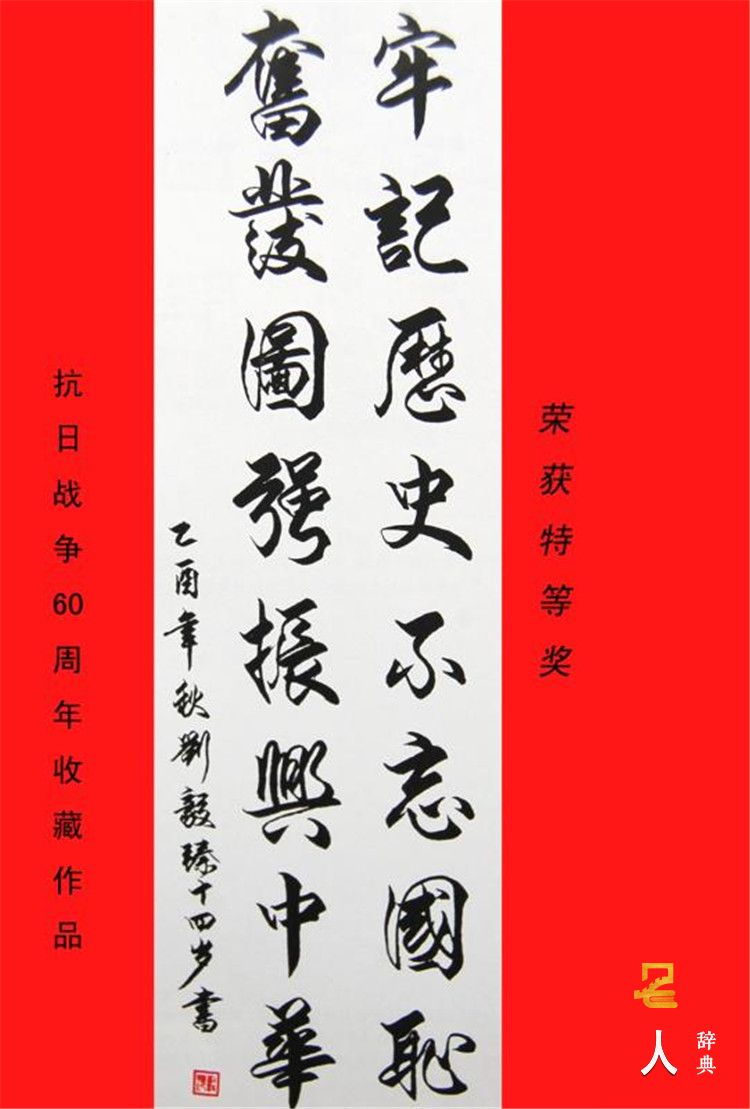 荣获特等奖
牢記歷史不忘國恥
奮發圖强振興中華
乙酉年秋劉毅臻十四岁書
抗日战争60周年收藏作品
人
辞典